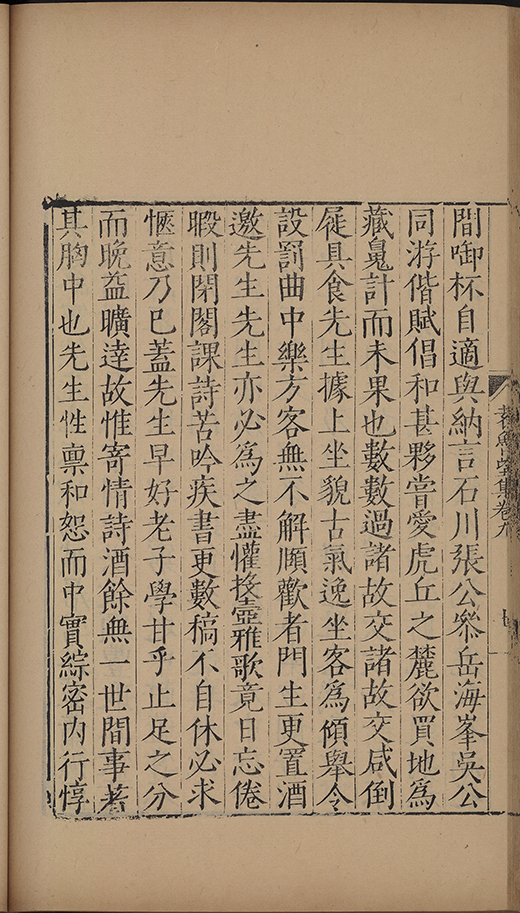 間啣杯自適與納言石川張公叅岳海峯吳公
同游偕賦倡和甚夥嘗愛虎丘之麓欲買地爲
藏㲋計而未果也數數過諸故交諸故交咸倒
屣具食先生據上坐貌古氣逸坐客爲傾舉令
設罰曲中樂方客無不解頤歡者門生更置酒
邀先生先生亦必爲之盡懽投壺雅歌竟日忘倦
暇則閉閣課詩苦吟疾書更數稿不自休必求
愜意乃已蓋先生早好老子學甘乎止足之分
而晚益曠達故惟寄情詩酒餘無一世間事著
其胸中也先生性稟和恕而中實綜密内行惇
集卷九